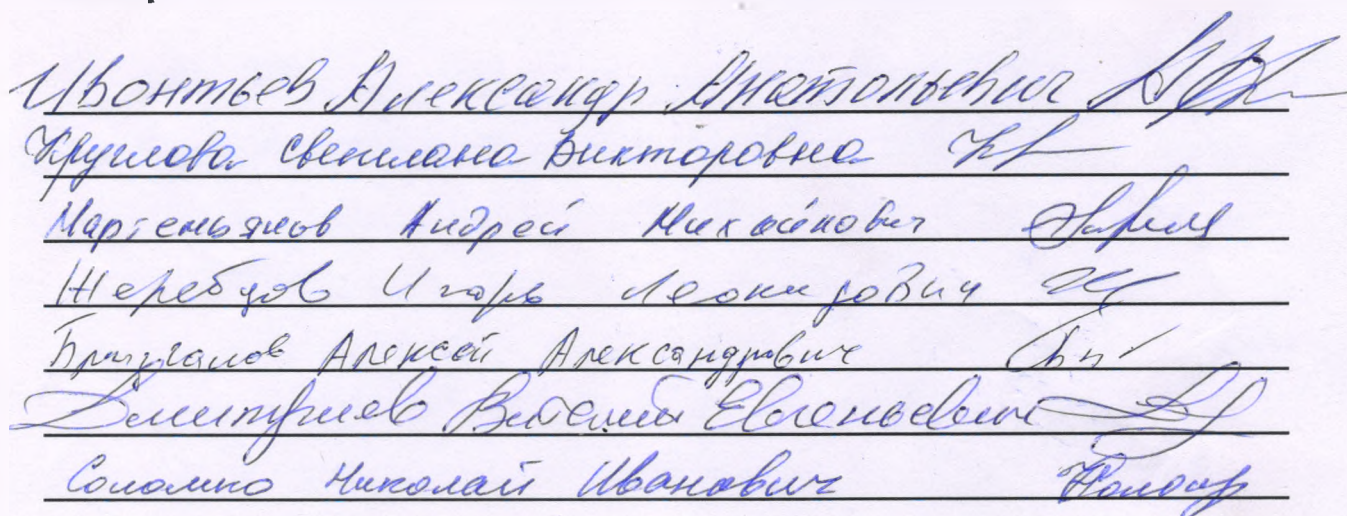 Ивонтьев Александр Анатольевич
Круглова Светлана Викторовна
Мартемьянов Андрей Михайлович
Жеребцов Игорь Леонидович
Алексей Александрович
Дмитриев Виталий Евгеньевич
Соломко Николай Иванович